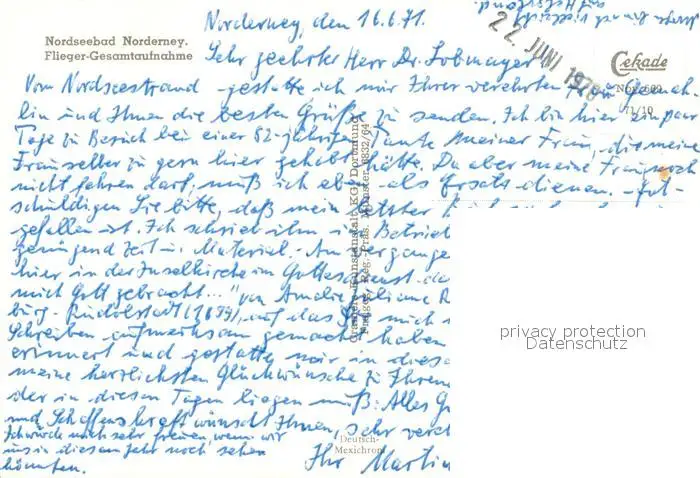 Norderney, den 16.6.71.
Nordseebad Norderney.
Flieger-Gesamtaufnahme
22. JUNI 1971
Cekade
Sehr geehrter Herr Dr. Lobmayer!
Vom Nordseestrand gestatte ich mir Ihrer verehrten Frau Gemah-
lin und Ihnen die besten Grüße zu senden. Ich bin hier ein paar
71/10
Tage zu Besuch bei einer 82-jährigen Tante meiner Frau, die meine
Frau selber zu gern hier gehabt hätte. Da aber meine Frau noch
nicht fahren darf, muß ich eben als Ersatz dienen. Ent-
schuldigen Sie bitte, daß mein letzter
gefallen ist. Ich schrieb ihn im Betrieb
genügend Zeit u. Material. Am vergange
hier in der Inselkirche im Gottesdienst
mich Gott gebracht..." von Amalie Juliane R
burg-Rudolstadt (1699), auf das Sie mich
Schreiben aufmerksam gemacht haben
erinnert und gestatte mir in diese
meine herzlichsten Glückwünsche zu Ihrem
der in diesen Tagen liegen muß: Alles G
und Schaffenskraft wünscht Ihnen, sehr vereh
Ich würde mich sehr freuen, wenn wir
uns in diesem Jahr noch sehen
könnten.
Ihr Martin
Deutsch-
Mexichrom
Cramers Kunstanstalt KG, Dortmund
Freigeg. Reg.-Präs. Münster 6832/64
privacy protection
Datenschutz